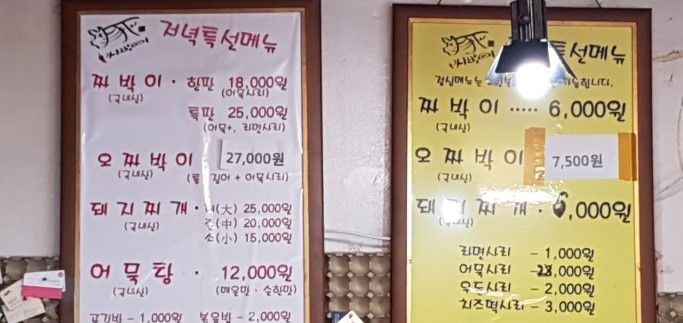 저녁특선메뉴
짜 박 이 · 한판 18,000원
(국내산) (어묵사리)
특판 25,000원
(어묵+, 라면사리)
오 짜 박 이 27,000원
(국내산) 어 + 어묵사리)
돼 지 찌 개 · 대(大) 25,000원
(국내산) 중(中) 20,000원
소(小) 15,000원
어 묵 탕 · 12,000원
(국내산) (매운맛 · 순한맛)
공기밥 - 1,000원 볶음밥 - 2,000원
특선메뉴
점심메뉴는
짜 박 이 ····· 6,000원
(국내산)
오 짜 박 이 7,500원
(국내산)
돼 지 찌 개 · 6,000원
(국내산)
라면사리 - 1,000원
어묵사리 - 2,000원
우동사리 - 2,000원
치즈떡사리 - 3,000원